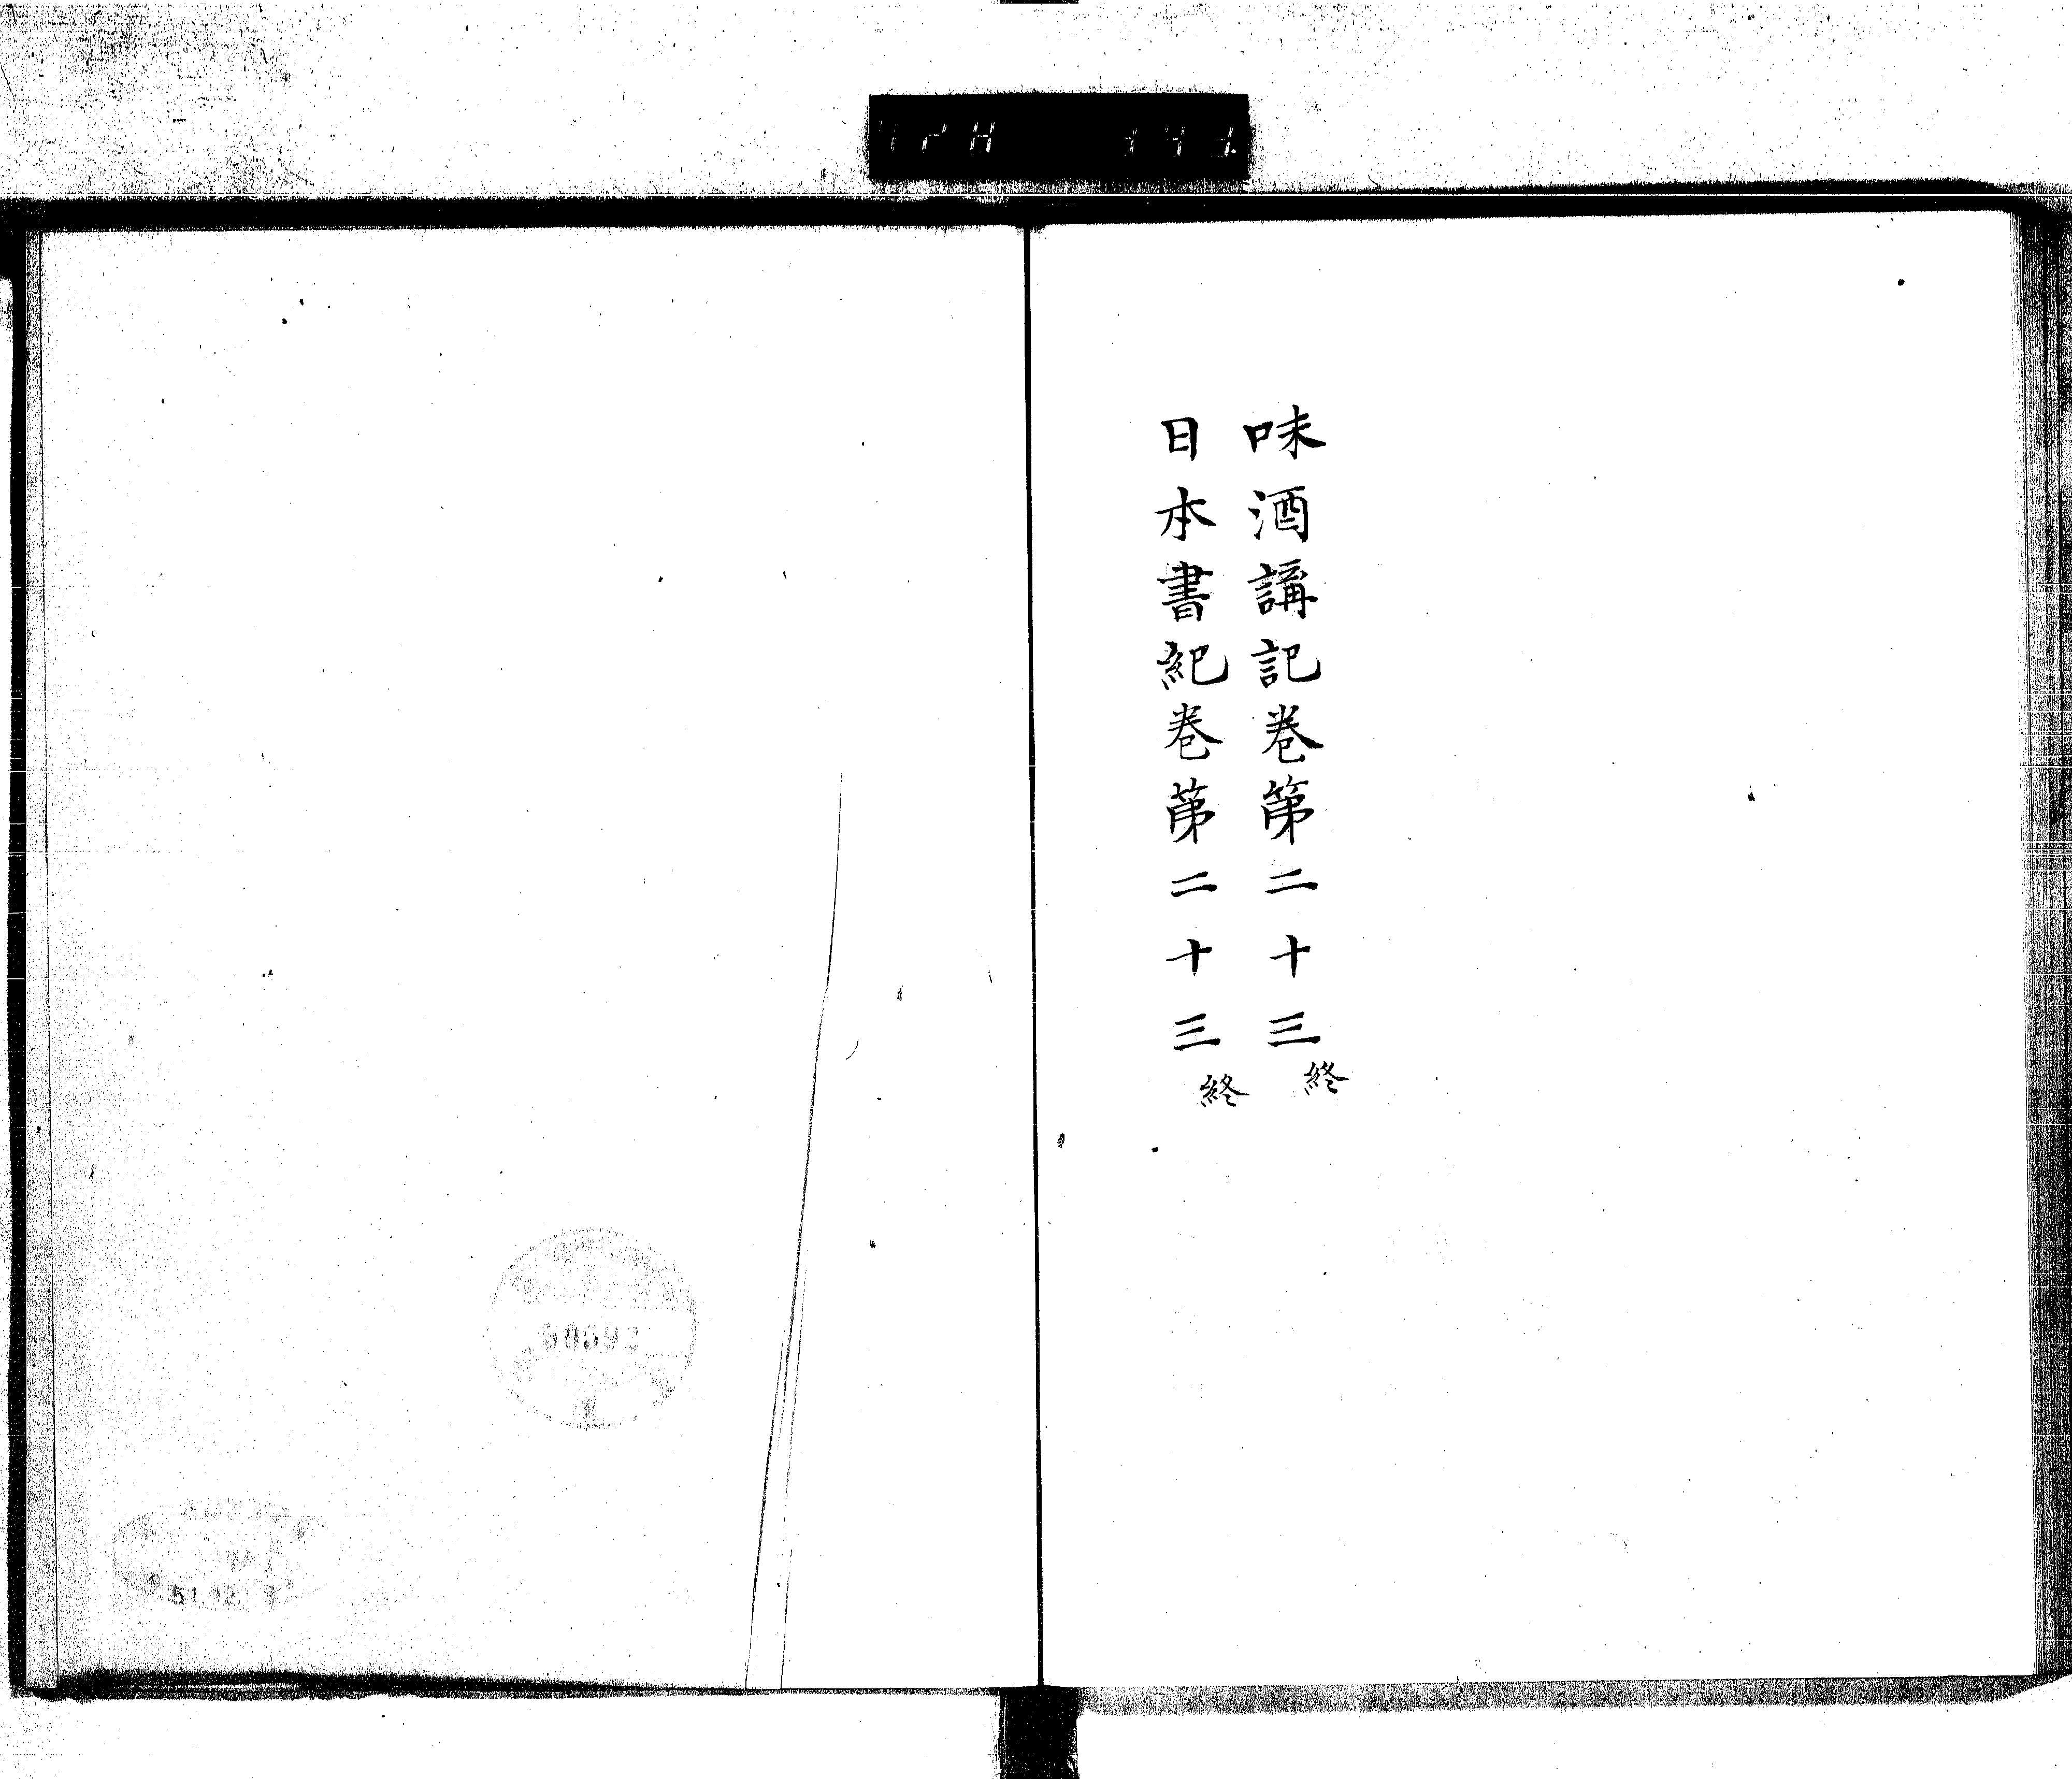 味酒講記巻第二十三終
日本書紀巻第二十三終